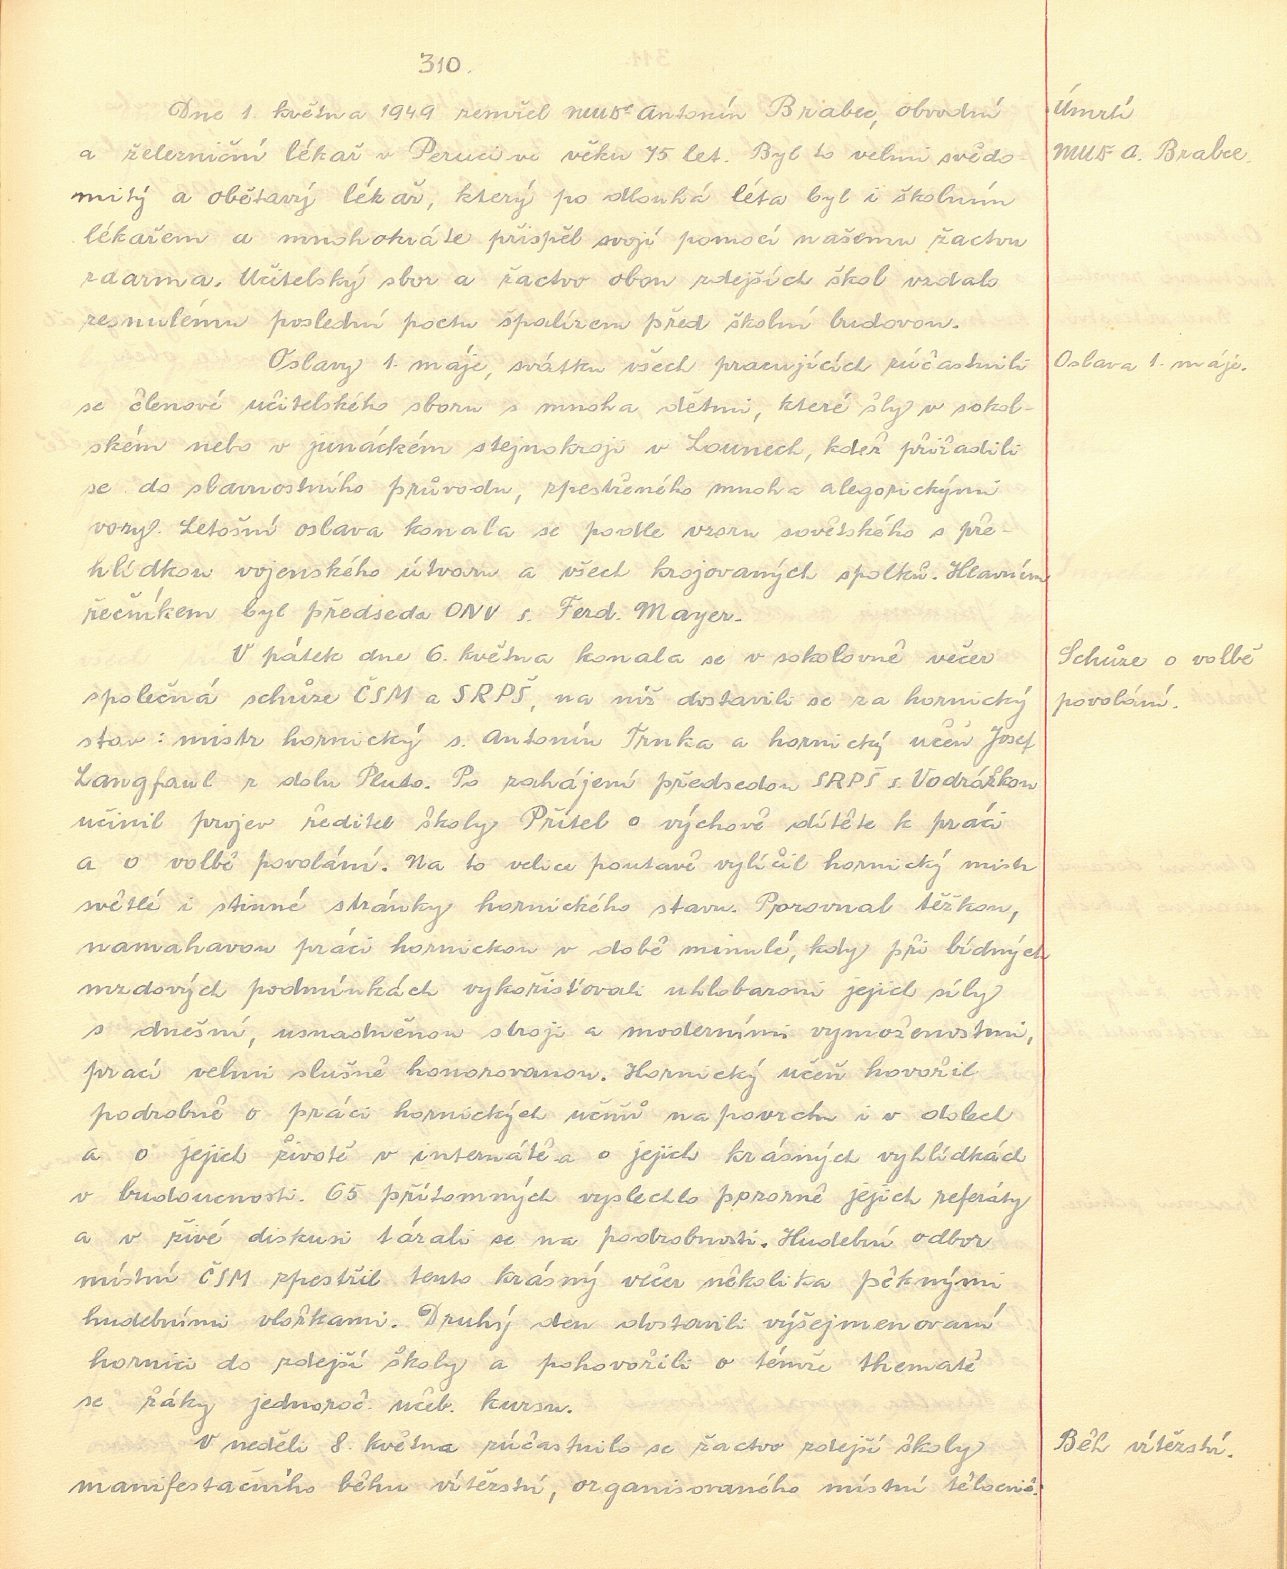 310.
Dne 1. května 1949 zemřel MUDr Antonín Brabec, obvodní
a železniční lékař v Peruci ve věku 75 let. Byl to velmi svědo-
mitý a obětavý lékař, který po dlouhá léta byl i školním
lékařem a mnohokráte přispěl svojí pomocí našemu žactvu
zdarma. Učitelský sbor a žactvo obou zdejších škol vzdalo
zesnulému poslední poctu špalírem před školní budovou.
Oslavy 1. máje, svátku všech pracujících zúčastnili
se členové učitelského sboru s mnoha dětmi, které šly v sokol-
ském nebo v junáckém stejnokroji v Lounech, kdež přiřadili
se do slavnostního průvodu, zpestřeného mnoha alegorickými
vozy. Letošní oslava konala se podle vzoru sovětského s pře-
hlídkou vojenského útvaru a všech krojovaných spolků. Hlavním
řečníkem byl předseda ONV s. Ferd. Mayer.
V pátek dne 6. května konala se v sokolovně večer
společná schůze ČSM a SRPŠ, na níž dostavili se za hornický
stav: mistr hornický s. Antonín Trnka a hornický učeň Josef
Langfaul z dolu Pluto. Po zahájení předsedou SRPŠ s. Vodrážkou
učinil projev ředitel školy Přítel o výchově dítěte k práci
a o volbě povolání. Na to velice poutavě vylíčil hornický mistr
světlé i stinné stránky hornického stavu. Porovnal těžkou,
namahavou práci hornickou v době minulé, kdy při bídných
mzdových podmínkách vykořisťovali uhlobaroni jejich síly
s dnešní, usnadněnou stroji a moderními vymoženostmi,
prací velmi slušně honorovanou. Hornický učeň hovořil
podrobně o práci hornických učňů na povrchu i v dolech
a o jejich životě v internátě a o jejich krásných vyhlídkách
v budoucnosti. 65 přítomných vyslechlo pozorně jejich referáty
a v živé diskusi tázali se na podrobnosti. Hudební odbor
místní ČSM zpestřil tento krásný večer několika pěknými
hudebními vložkami. Druhý den dostavili výšejmenovaní
horníci do zdejší školy a pohovořili o témže thematě
se žáky jednoroč. učeb. kursu.
V neděli 8. května zúčastnilo se žactvo zdejší školy
manifestačního běhu vítězství, organisovaného místní tělocvič.
Úmrtí
MUDr A. Brabce.
Oslava 1. máje.
Schůze o volbě
povolání.
Běh vítězství.